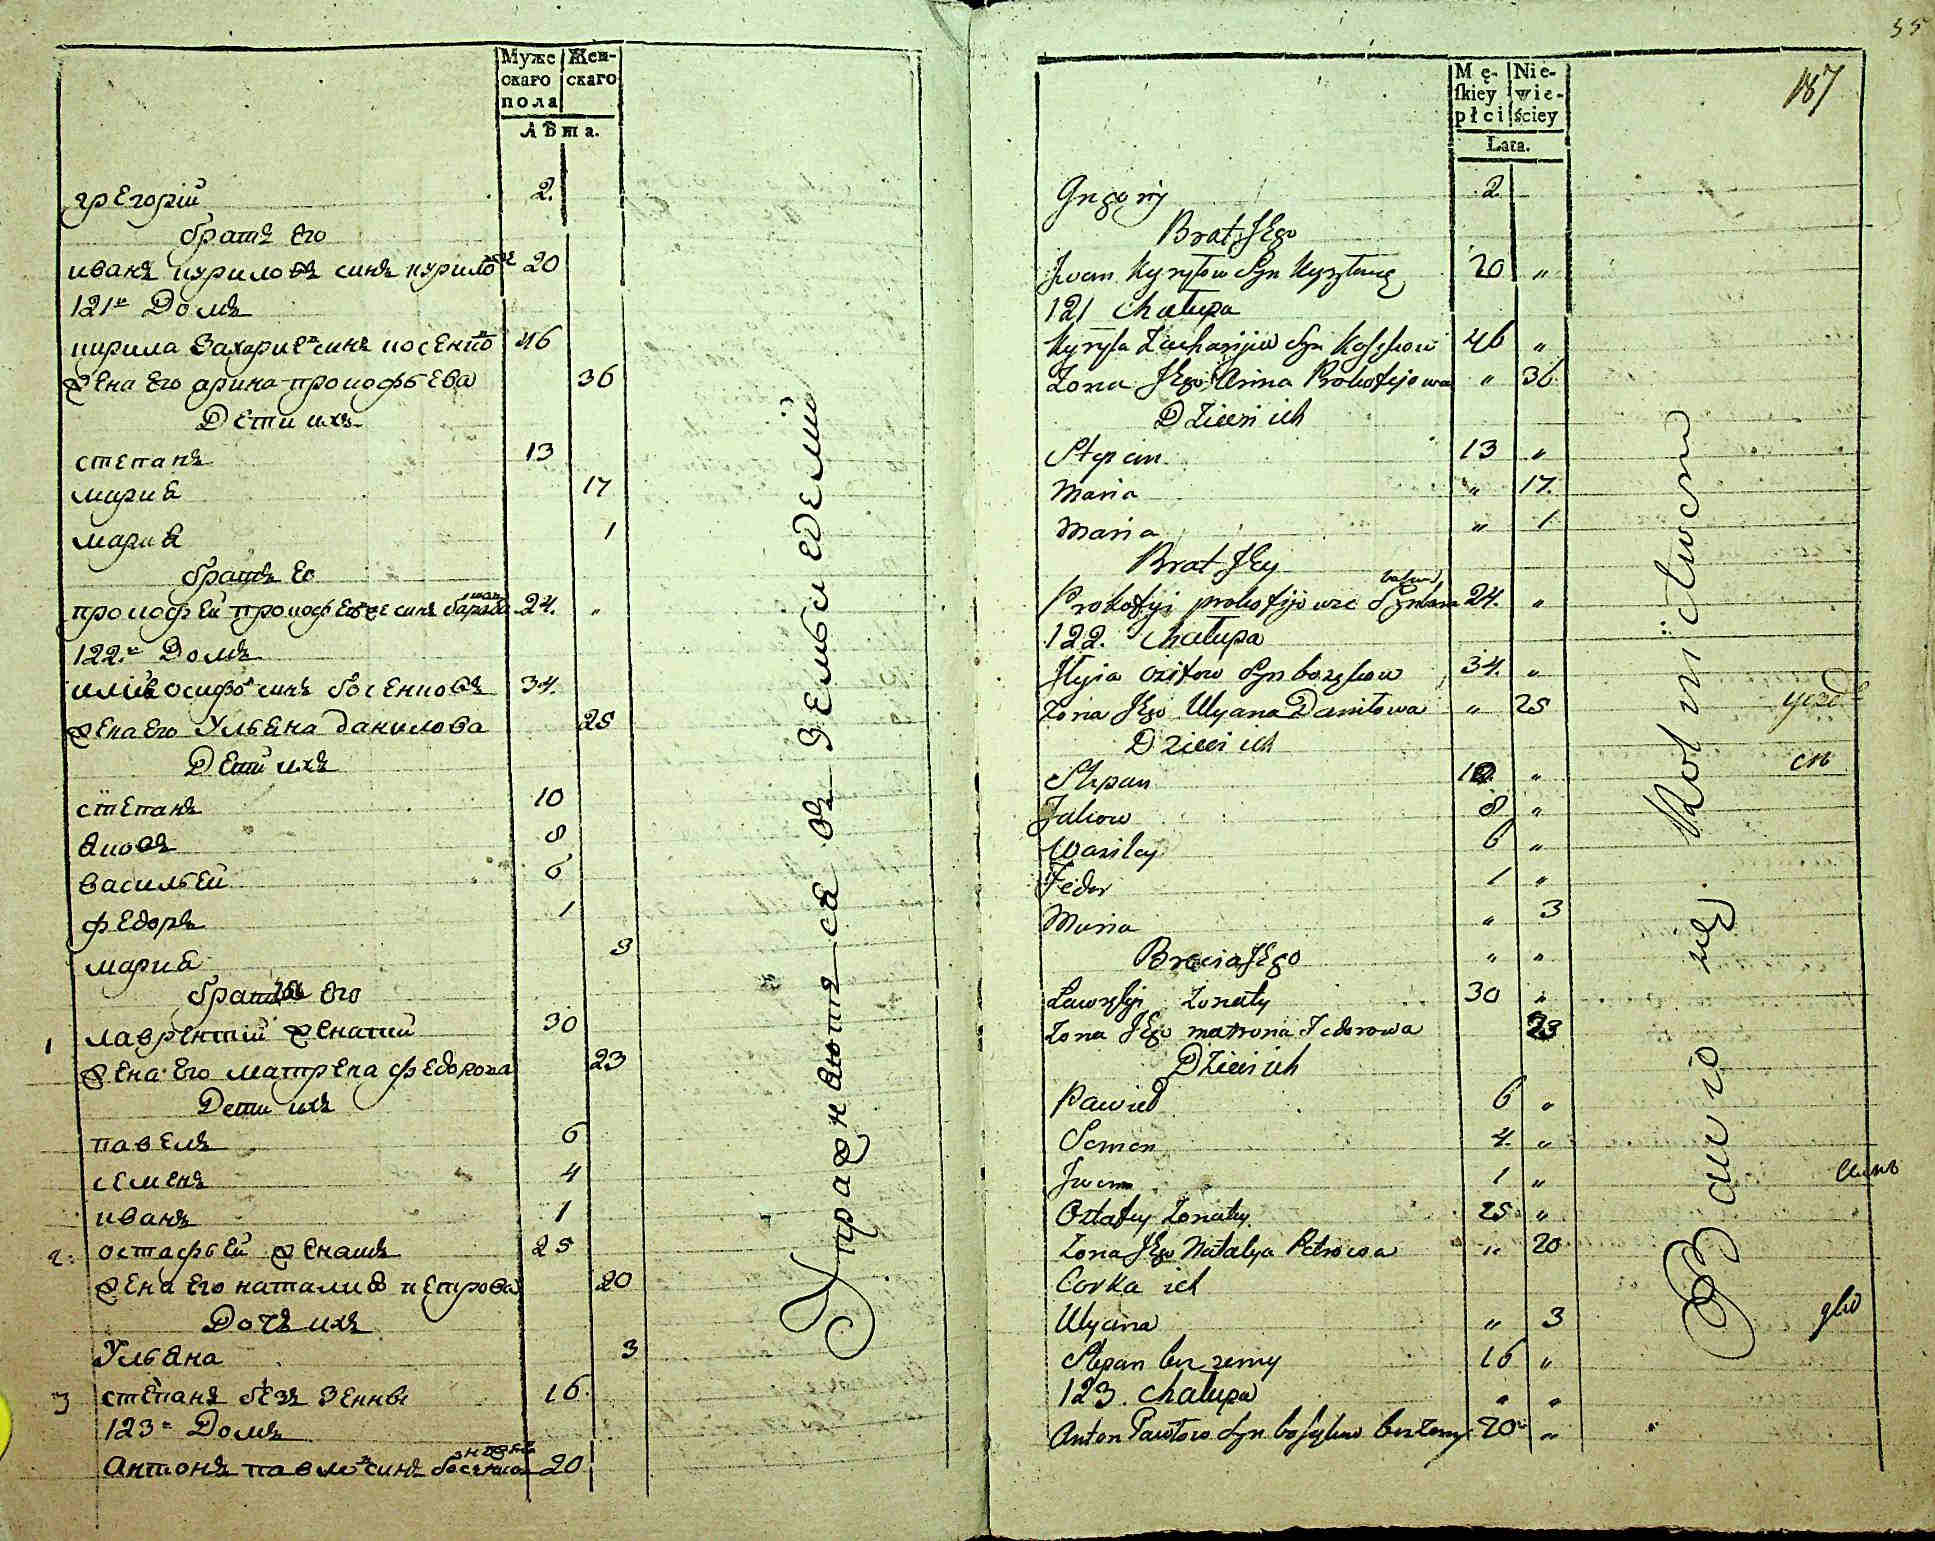 Муже Жен-
скаго скаго
пола
лѣта.
григорій 2.
братъ его
иванъ куриловъ синъ курило 20
121й Домъ
кирила Захариевъ синъ косенко 46
жена его арина прокофьева 36
Дети ихъ
степанъ 13
мария 17
мария 1
братъ ее
прокофей прокофьевъ синъ 24. „
122.й Домъ
илія осифовъ синъ босенковъ 34.
жена его Ульяна данилова 25
Дети ихъ
степанъ 10
яковъ 8
василѣй 6
федоръ 1
мария 3
братья его
1 лаврентій женатий 30
жена его матрена федорова 23
Дети ихъ
павелъ 6
семенъ 4
иванъ 1
2. остафѣй женатъ 25
жена его наталия петрова 20
Дочь ихъ
Ульяна 3
3 степанъ безъ женны 16
123й Домъ
Антонъ павловъ синъ 20
Упражняются въ земледелии
55
187
Mę- Nie-
skiey wie-
płci ściey
Lata.
Gregory 2
Brat Jego
Jwan Kyryłow Syn 20 „
121 Chałupa
Kyryła Zacharijow Syn 46 „
Żona Jego Arina Prokofijowa „ 36
Dzieci ich
Stepan 13 „
Maria „ 17.
Maria „ 1
Brat Jey
Prokofyi prokofijowic 24. „
122. Chałupa
Jlyia Ozifow Syn boszkow 34. „
Żona Jego Ulyana Daniłowa „ 25
Dzieci ich
Stepan 10. „
Jakow 8 „
Wasiley 6 „
Fedor 1 „
Maria „ 3
Bracia Jego „ „
Ławryn Żonaty 30 „
Żona Jego matrona Fedorowa 23
Dzieci ich
Paweł 6 „
Semen 4. „
Jwan 1 „
Ostafey Żonaty 25 „
Żona Jego Natalya Petrowa „ 20
Corka ich
Ulyana „ 3
Stepan bez żenny 16 „
123. Chałupa „ „
Anton Pawłow Syn 20 „
Bawio się Rolnictwem